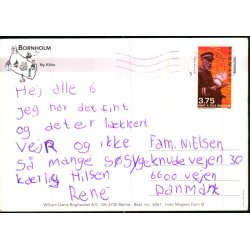 BORNHOLM
Ny Kirke
Hej alle 6
jeg har det fint
og det er lækkert
vejR og ikke
så mange søsyge
kærlig Hilsen
René
3.75
Fam. Nielsen
knudevejen 30
6600 vejen
Danmark
William Dams Boghandel A/S · DK-3700 Rønne · Best. nr. 6261 · Foto Mogens Dam ©